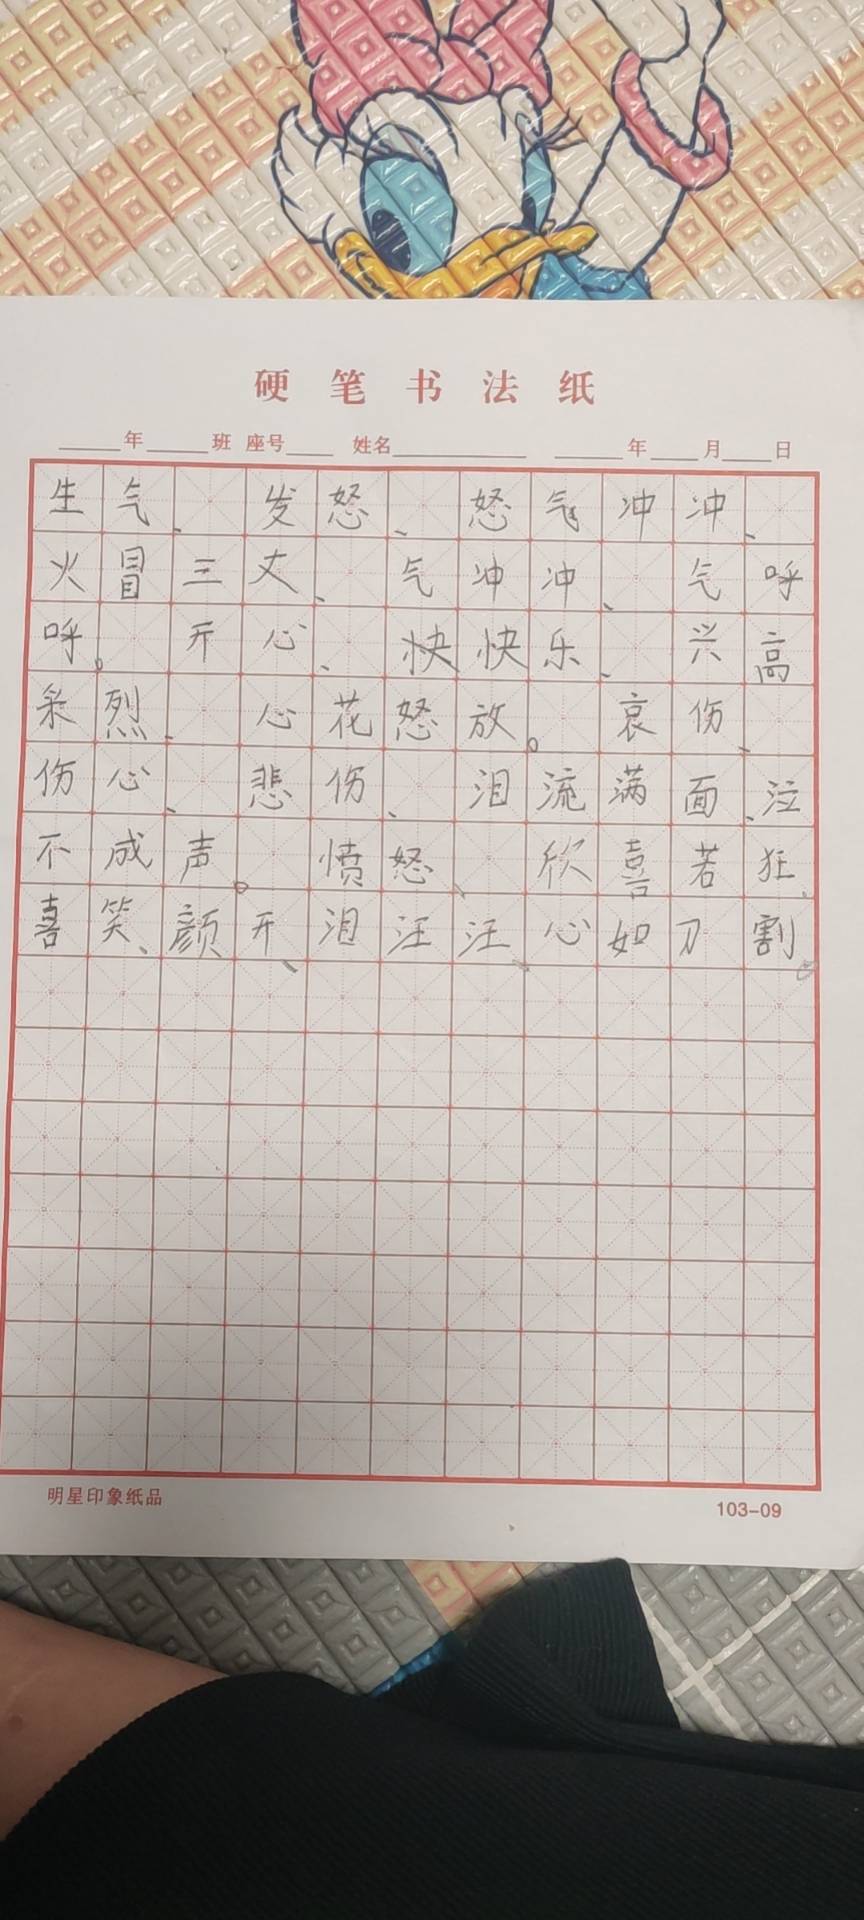 硬笔书法纸
年 班 座号 姓名 年 月 日
生气、发怒、怒气冲冲、
火冒三丈、气冲冲、气呼
呼。开心、快快乐、兴高
采烈、心花怒放。哀伤、
伤心、悲伤、泪流满面、泣
不成声。愤怒、欣喜若狂、
喜笑、颜开、泪汪汪、心如刀割。
明星印象纸品
103-09